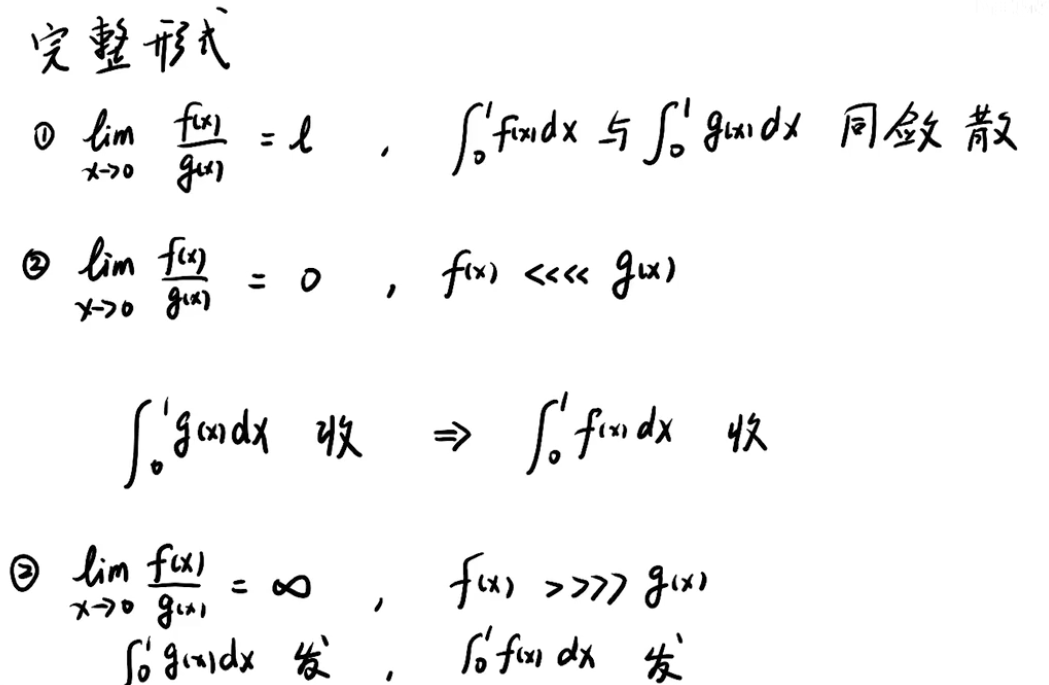 完整形式
① lim_{x→0} f(x)/g(x) = l , ∫₀¹ f(x)dx 与 ∫₀¹ g(x)dx 同敛散
② lim_{x→0} f(x)/g(x) = 0 , f(x) <<<< g(x)
∫₀¹ g(x)dx 收 ⇒ ∫₀¹ f(x)dx 收
③ lim_{x→0} f(x)/g(x) = ∞ , f(x) >>>> g(x)
∫₀¹ g(x)dx 发 , ∫₀¹ f(x)dx 发